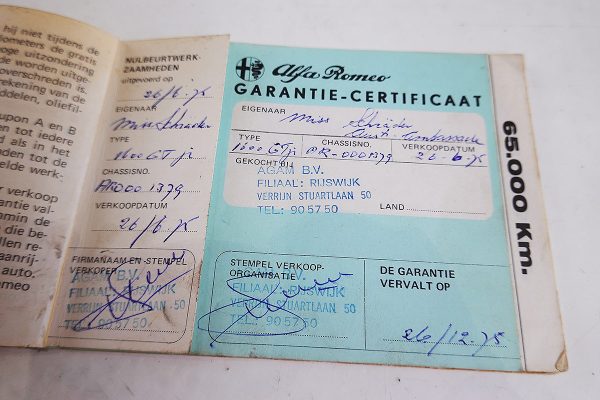 hij niet tijdens de
ilometers de gratis
oge uitzondering
de worden uitge-
overschreden is.
rekening van de
ddelen, oliefil-
upon A en B
en tot iedere
d als in het
nden tot de
elde werk-
verkoop
rantie val-
min de
die be-
llen re-
aanrij-
auto.
omeo
NULBEURTWERK-
ZAAMHEDEN
uitgevoerd op
26/6-75
EIGENAAR
Miss Schräder
TYPE
1600 GT ji
CHASSISNO.
AR000 1379
VERKOOPDATUM
26/6 75
FIRMANAAM-EN-STEMPEL
VERKOPER
AGAM B.V.
FILIAAL: RIJSWIJK
VERRIJN STUARTLAAN 50
TEL: 90 57 50
Alfa Romeo
GARANTIE-CERTIFICAAT
EIGENAAR Miss Schräder
TYPE CHASSISNO. VERKOOPDATUM
1600 GTji AR-0001379 26-6-75
GEKOCHT BIJ
AGAM B.V.
FILIAAL: RIJSWIJK
VERRIJN STUARTLAAN 50
TEL: 90 57 50 LAND
STEMPEL VERKOOP-
ORGANISATIE
FILIAAL: RIJSWIJK
VERRIJN STUARTLAAN 50
TEL: 90 57 50
DE GARANTIE
VERVALT OP
26/12-75
65.000 Km.